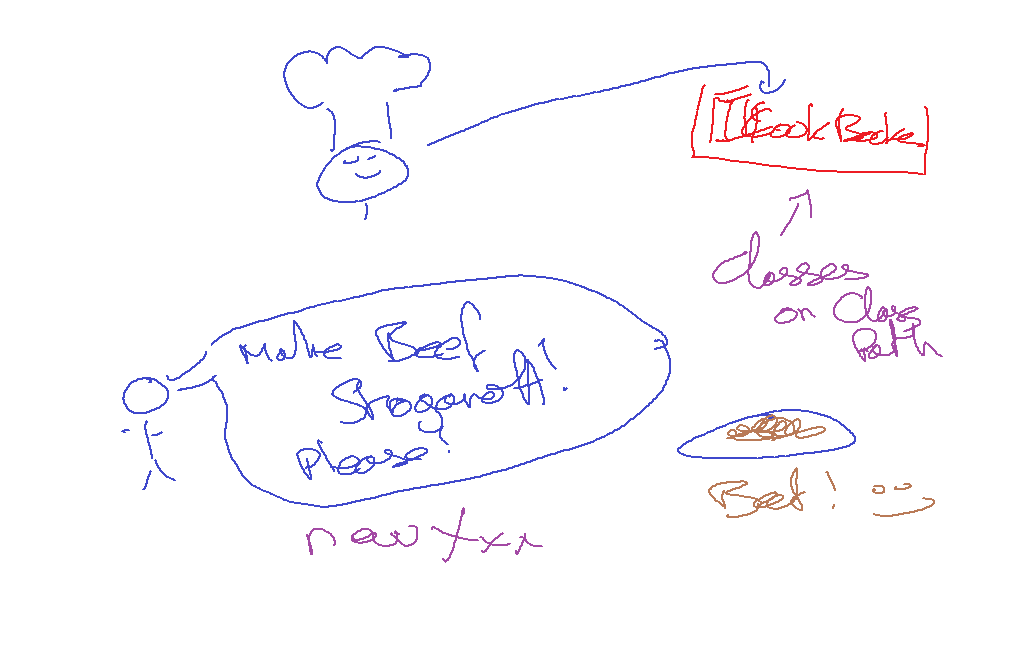 CookBook
Classes
on Class
Path
Make Beef
Stroganoff!
Please!
new Xxx
Beef!